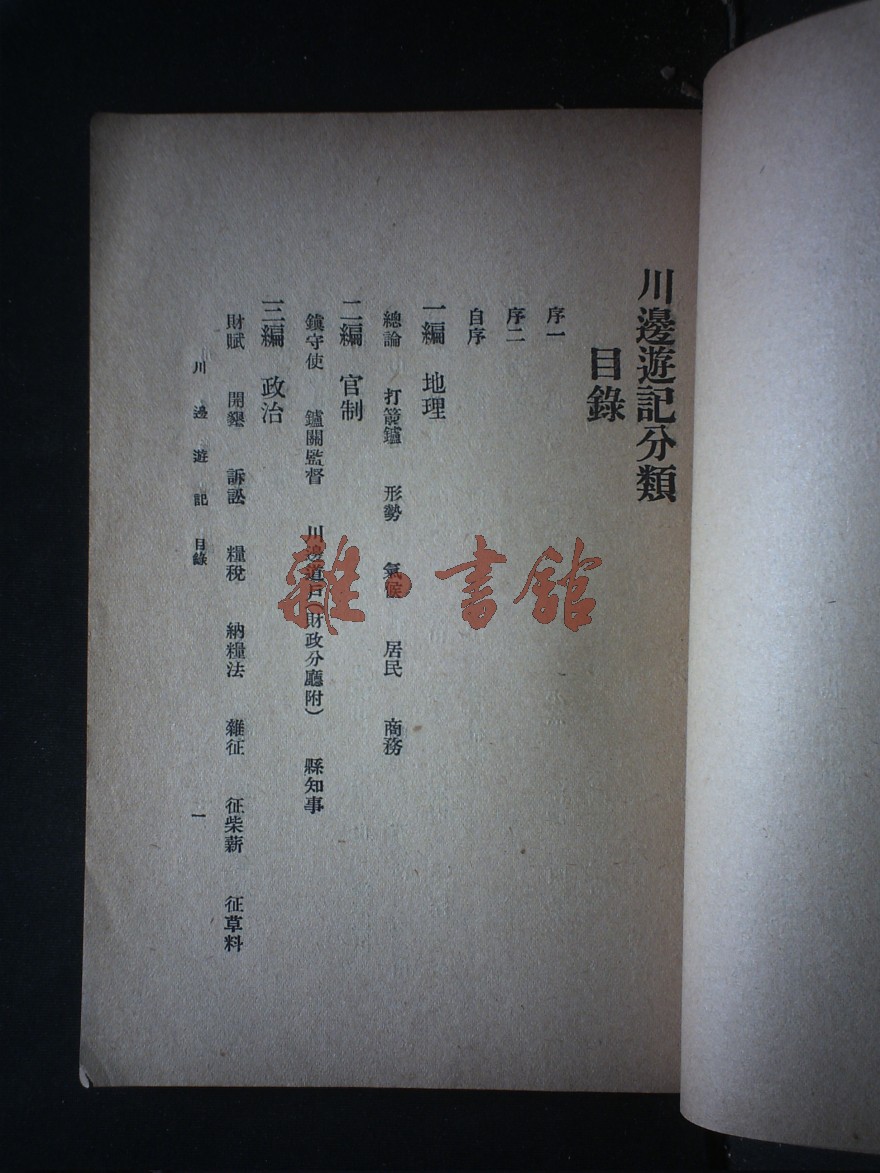 川邊遊記分類
目錄
序一
序二
自序
一編 地理
總論 打箭鑪 形勢 氣候 居民 商務
二編 官制
鎮守使 鑪關監督 川邊道尹(財政分廳附) 縣知事
三編 政治
財賦 開墾 訴訟 糧稅 納糧法 雜征 征柴薪 征草料
川邊遊記 目錄 一
雜·書館